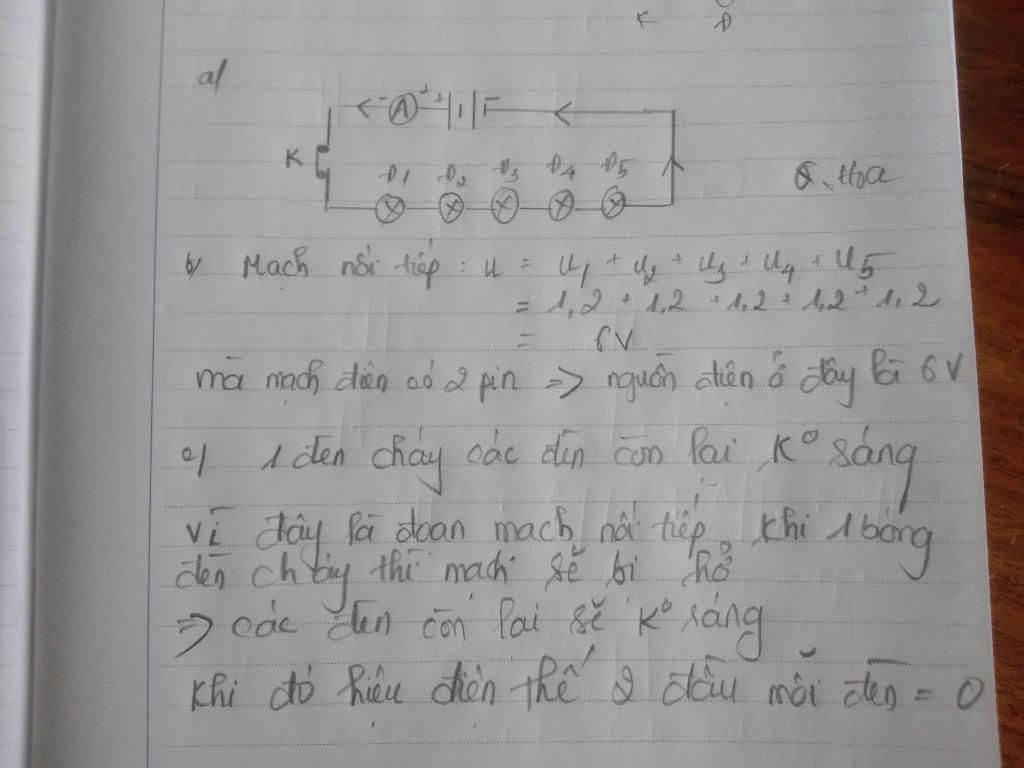 K Đ
a/
- A + + -
K
Đ1 Đ2 Đ3 Đ4 Đ5
Q. Hoa
b/ Mạch nối tiếp : U = U1 + U2 + U3 + U4 + U5
= 1,2 + 1,2 + 1,2 + 1,2 + 1,2
= 6V
mà mạch điện có 2 pin => nguồn điện ở đây là 6V
c/ 1 đèn cháy các đèn còn lại K° sáng
vì đây là đoạn mạch nối tiếp, khi 1 bóng
đèn cháy thì mạch sẽ bị hở
=> các đèn còn lại sẽ K° sáng
khi đó hiệu điện thế 2 đầu mỗi đèn = 0